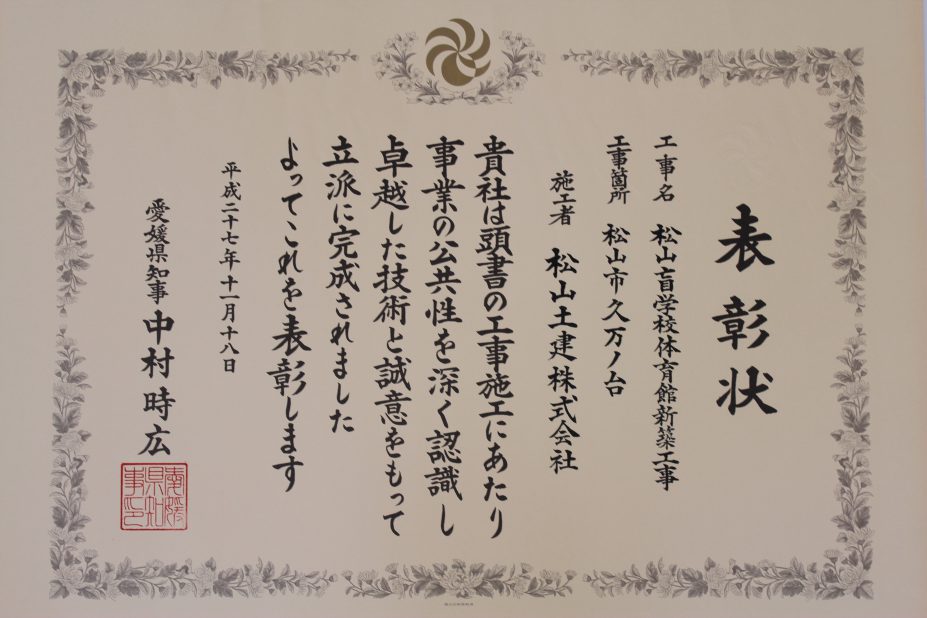 表彰状
工事名 松山盲学校体育館新築工事
工事箇所 松山市久万ノ台
施工者 松山土建株式会社
貴社は頭書の工事施工にあたり
事業の公共性を深く認識し
卓越した技術と誠意をもって
立派に完成されました
よってこれを表彰します
平成二十七年十一月十八日
愛媛県知事 中村時広
愛媛県知事印